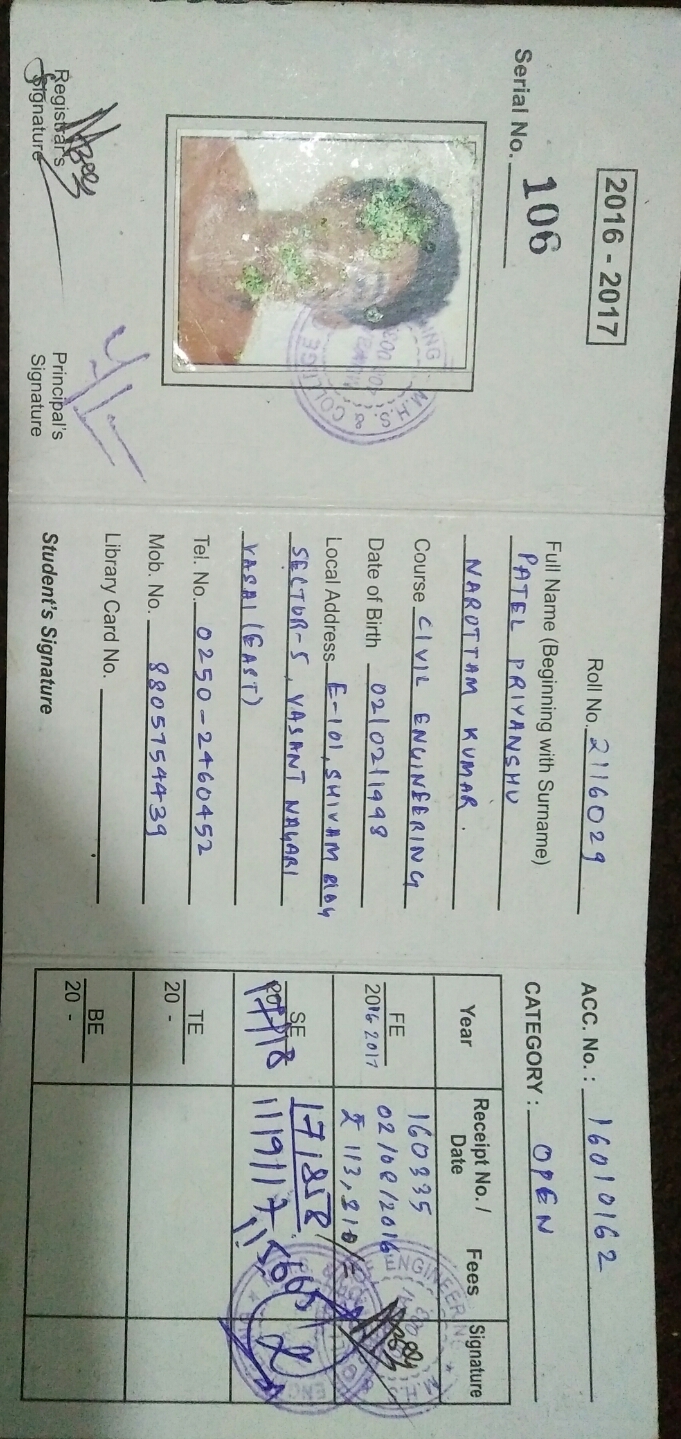 2016 - 2017
Serial No. 106
M.H.S. & COLLEGE
Registrar's
Signature
Principal's
Signature
Roll No. 2116029
Full Name (Beginning with Surname)
PATEL PRIYANSHU
NAROTTAM KUMAR.
Course CIVIL ENGINEERING
Date of Birth 02/02/1998
Local Address E-101, SHIVAM BLDG
SECTOR-5, VASANT NAGARI
VASAI (EAST)
Tel. No. 0250-2460452
Mob. No. 8805754439
Library Card No.
Student's Signature
ACC. No. : 16010162
CATEGORY : OPEN
Year Receipt No. / Date Fees Signature
FE 2016 2017 160335 02/08/2016 ₹ 113,810/-
SE 17/18 171858 11/9/17
TE 20 -
BE 20 -